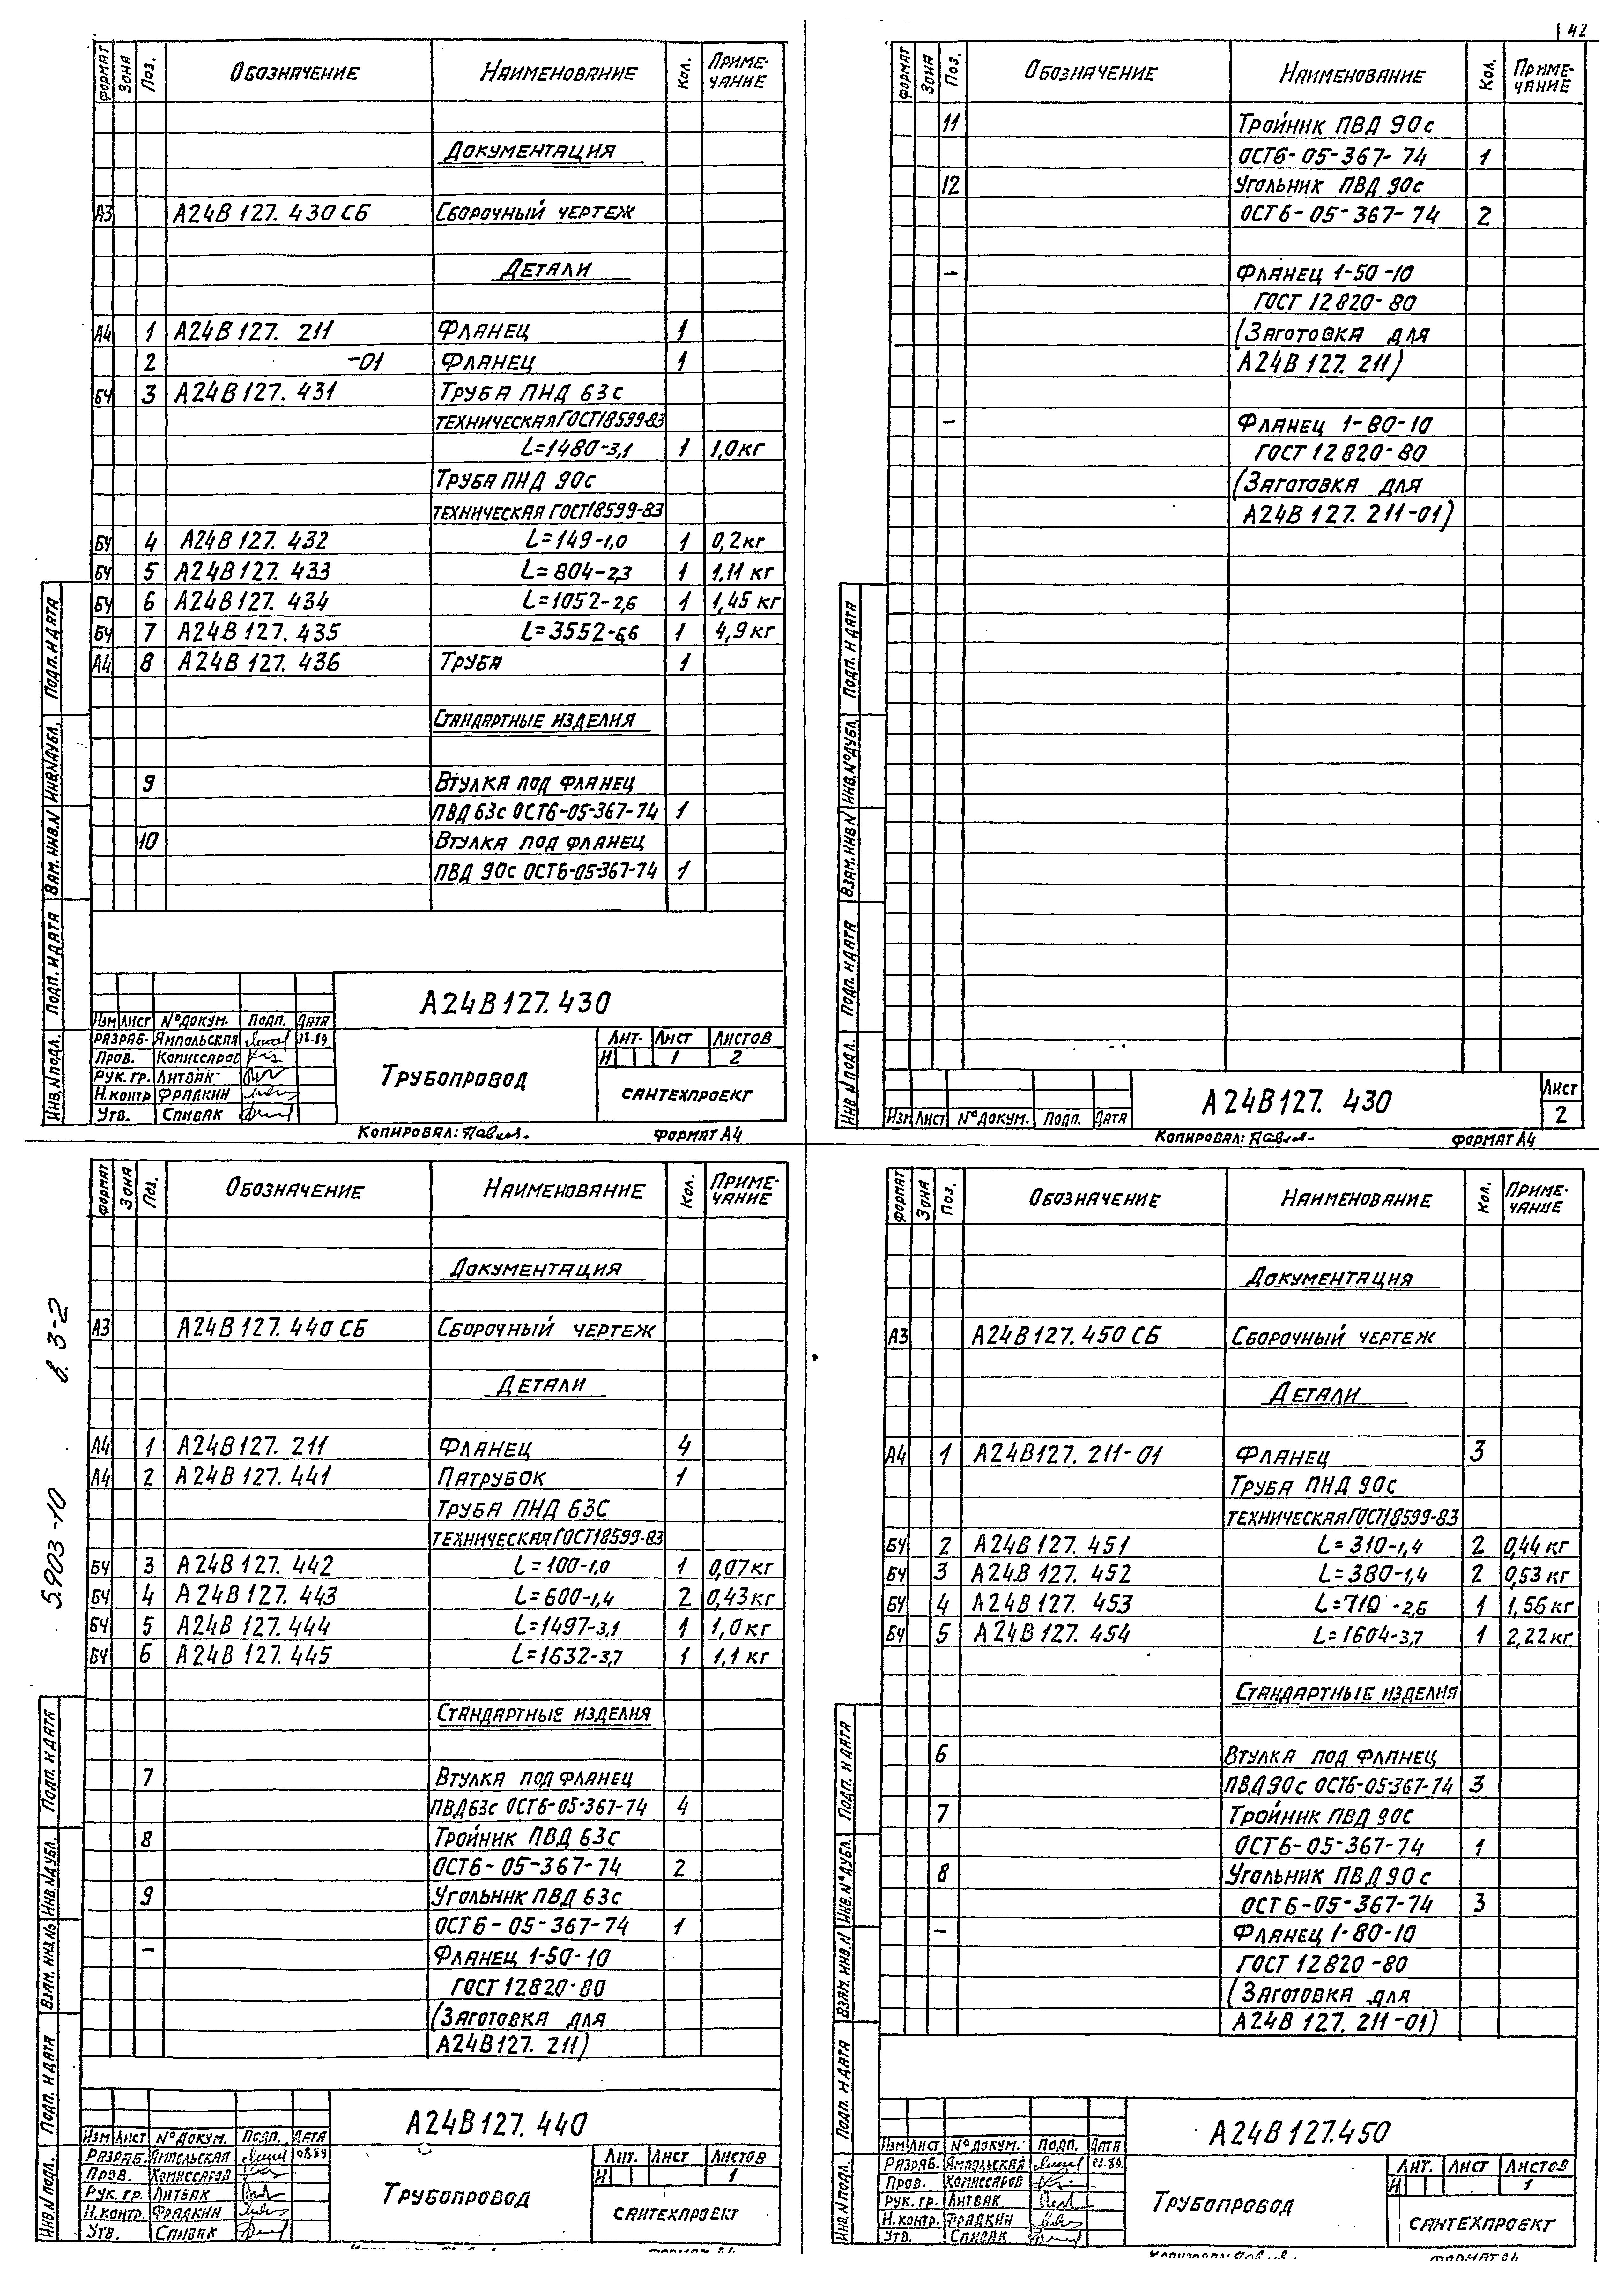 42
ФОРМАТ ЗОНА ПОЗ. ОБОЗНАЧЕНИЕ НАИМЕНОВАНИЕ КОЛ. ПРИМЕ-
ЧАНИЕ
ДОКУМЕНТАЦИЯ
А3 А24В 127. 430 СБ СБОРОЧНЫЙ ЧЕРТЕЖ
ДЕТАЛИ
А4 1 А24В 127. 211 ФЛАНЕЦ 1
2 -01 ФЛАНЕЦ 1
БЧ 3 А24В 127. 431 ТРУБА ПНД 63с
ТЕХНИЧЕСКАЯ ГОСТ 18599-83
L=1480-3,1 1 1,0 кг
ТРУБА ПНД 90с
ТЕХНИЧЕСКАЯ ГОСТ 18599-83
БЧ 4 А24В 127. 432 L=149-1,0 1 0,2 кг
БЧ 5 А24В 127. 433 L=804-2,3 1 1,11 кг
БЧ 6 А24В 127. 434 L=1052-2,6 1 1,45 кг
БЧ 7 А24В 127. 435 L=3552-6,6 1 4,9 кг
А4 8 А24В 127. 436 ТРУБА 1
СТАНДАРТНЫЕ ИЗДЕЛИЯ
9 ВТУЛКА ПОД ФЛАНЕЦ
ПВД 63с ОСТ6-05-367-74 1
10 ВТУЛКА ПОД ФЛАНЕЦ
ПВД 90с ОСТ6-05-367-74 1
ПОДП. И ДАТА
ИНВ.N ДУБЛ.
ВЗАМ. ИНВ.N
ПОДП. И ДАТА
ИНВ.N ПОДЛ.
А24В 127. 430
ИЗМ ЛИСТ N° ДОКУМ. ПОДП. ДАТА
РАЗРАБ. ЯМПОЛЬСКАЯ 08.89
ПРОВ. КОМИССАРОВ
РУК. ГР. ЛИТВАК
Н.КОНТР ФРАДКИН
УТВ. СПИВАК
ТРУБОПРОВОД
ЛИТ. ЛИСТ ЛИСТОВ
И 1 2
САНТЕХПРОЕКТ
КОПИРОВАЛ: ФОРМАТ А4
ФОРМАТ ЗОНА ПОЗ. ОБОЗНАЧЕНИЕ НАИМЕНОВАНИЕ КОЛ. ПРИМЕ-
ЧАНИЕ
11 ТРОЙНИК ПВД 90с
ОСТ6-05-367-74 1
12 УГОЛЬНИК ПВД 90с
ОСТ 6-05-367-74 2
- ФЛАНЕЦ 1-50-10
ГОСТ 12820-80
(ЗАГОТОВКА ДЛЯ
А24В 127. 211)
- ФЛАНЕЦ 1-80-10
ГОСТ 12820-80
(ЗАГОТОВКА ДЛЯ
А24В 127. 211-01)
ПОДП. И ДАТА
ИНВ.N° ДУБЛ.
ВЗАМ. ИНВ.N
ПОДП. И ДАТА
ИНВ.N ПОДЛ.
ИЗМ ЛИСТ N° ДОКУМ. ПОДП. ДАТА
А24В127. 430
ЛИСТ
2
КОПИРОВАЛ: ФОРМАТ А4
5.903-10 в. 3-2
ФОРМАТ ЗОНА ПОЗ. ОБОЗНАЧЕНИЕ НАИМЕНОВАНИЕ КОЛ. ПРИМЕ-
ЧАНИЕ
ДОКУМЕНТАЦИЯ
А3 А24В 127. 440 СБ СБОРОЧНЫЙ ЧЕРТЕЖ
ДЕТАЛИ
А4 1 А24В127. 211 ФЛАНЕЦ 4
А4 2 А24В 127. 441 ПАТРУБОК 1
ТРУБА ПНД 63С
ТЕХНИЧЕСКАЯ ГОСТ 18599-83
БЧ 3 А24В 127. 442 L=100-1,0 1 0,07 кг
БЧ 4 А24В 127. 443 L=600-1,4 2 0,43 кг
БЧ 5 А24В 127. 444 L=1497-3,1 1 1,0 кг
БЧ 6 А24В 127. 445 L=1632-3,7 1 1,1 кг
СТАНДАРТНЫЕ ИЗДЕЛИЯ
7 ВТУЛКА ПОД ФЛАНЕЦ
ПВД 63с ОСТ6-05-367-74 4
8 ТРОЙНИК ПВД 63с
ОСТ6-05-367-74 2
9 УГОЛЬНИК ПВД 63с
ОСТ 6-05-367-74 1
- ФЛАНЕЦ 1-50-10
ГОСТ 12820-80
(ЗАГОТОВКА ДЛЯ
А24В127. 211)
ПОДП. И ДАТА
ИНВ.N ДУБЛ.
ВЗАМ. ИНВ.№
ПОДП. И ДАТА
ИНВ.N ПОДЛ.
А24В127. 440
ИЗМ ЛИСТ N° ДОКУМ. ПОДП. ДАТА
РАЗРАБ. ЯМПОЛЬСКАЯ 08.89
ПРОВ. КОМИССАРОВ
РУК. ГР. ЛИТВАК
Н.КОНТР. ФРАДКИН
УТВ. СПИВАК
ТРУБОПРОВОД
ЛИТ. ЛИСТ ЛИСТОВ
И 1
САНТЕХПРОЕКТ
ФОРМАТ А4
ФОРМАТ ЗОНА ПОЗ. ОБОЗНАЧЕНИЕ НАИМЕНОВАНИЕ КОЛ. ПРИМЕ-
ЧАНИЕ
ДОКУМЕНТАЦИЯ
А3 А24В 127. 450 СБ СБОРОЧНЫЙ ЧЕРТЕЖ
ДЕТАЛИ
А4 1 А24В127. 211-01 ФЛАНЕЦ 3
ТРУБА ПНД 90с
ТЕХНИЧЕСКАЯ ГОСТ 18599-83
БЧ 2 А24В 127. 451 L=310-1,4 2 0,44 кг
БЧ 3 А24В 127. 452 L=380-1,4 2 0,53 кг
БЧ 4 А24В 127. 453 L=710-2,6 1 1,56 кг
БЧ 5 А24В 127. 454 L=1604-3,7 1 2,22 кг
СТАНДАРТНЫЕ ИЗДЕЛИЯ
6 ВТУЛКА ПОД ФЛАНЕЦ
ПВД 90с ОСТ6-05-367-74 3
7 ТРОЙНИК ПВД 90С
ОСТ6-05-367-74 1
8 УГОЛЬНИК ПВД 90с
ОСТ 6-05-367-74 3
- ФЛАНЕЦ 1-80-10
ГОСТ 12820-80
(ЗАГОТОВКА ДЛЯ
А24В 127. 211-01)
ПОДП. И ДАТА
ИНВ.N° ДУБЛ.
ВЗАМ. ИНВ.N
ПОДП. И ДАТА
ИНВ.N ПОДЛ.
А24В127.450
ИЗМ ЛИСТ N° ДОКУМ. ПОДП. ДАТА
РАЗРАБ. ЯМПОЛЬСКАЯ
ПРОВ. КОМИССАРОВ
РУК. ГР. ЛИТВАК
Н.КОНТР. ФРАДКИН
УТВ. СПИВАК
ТРУБОПРОВОД
ЛИТ. ЛИСТ ЛИСТОВ
И 1
САНТЕХПРОЕКТ
КОПИРОВАЛ: ФОРМАТ А4